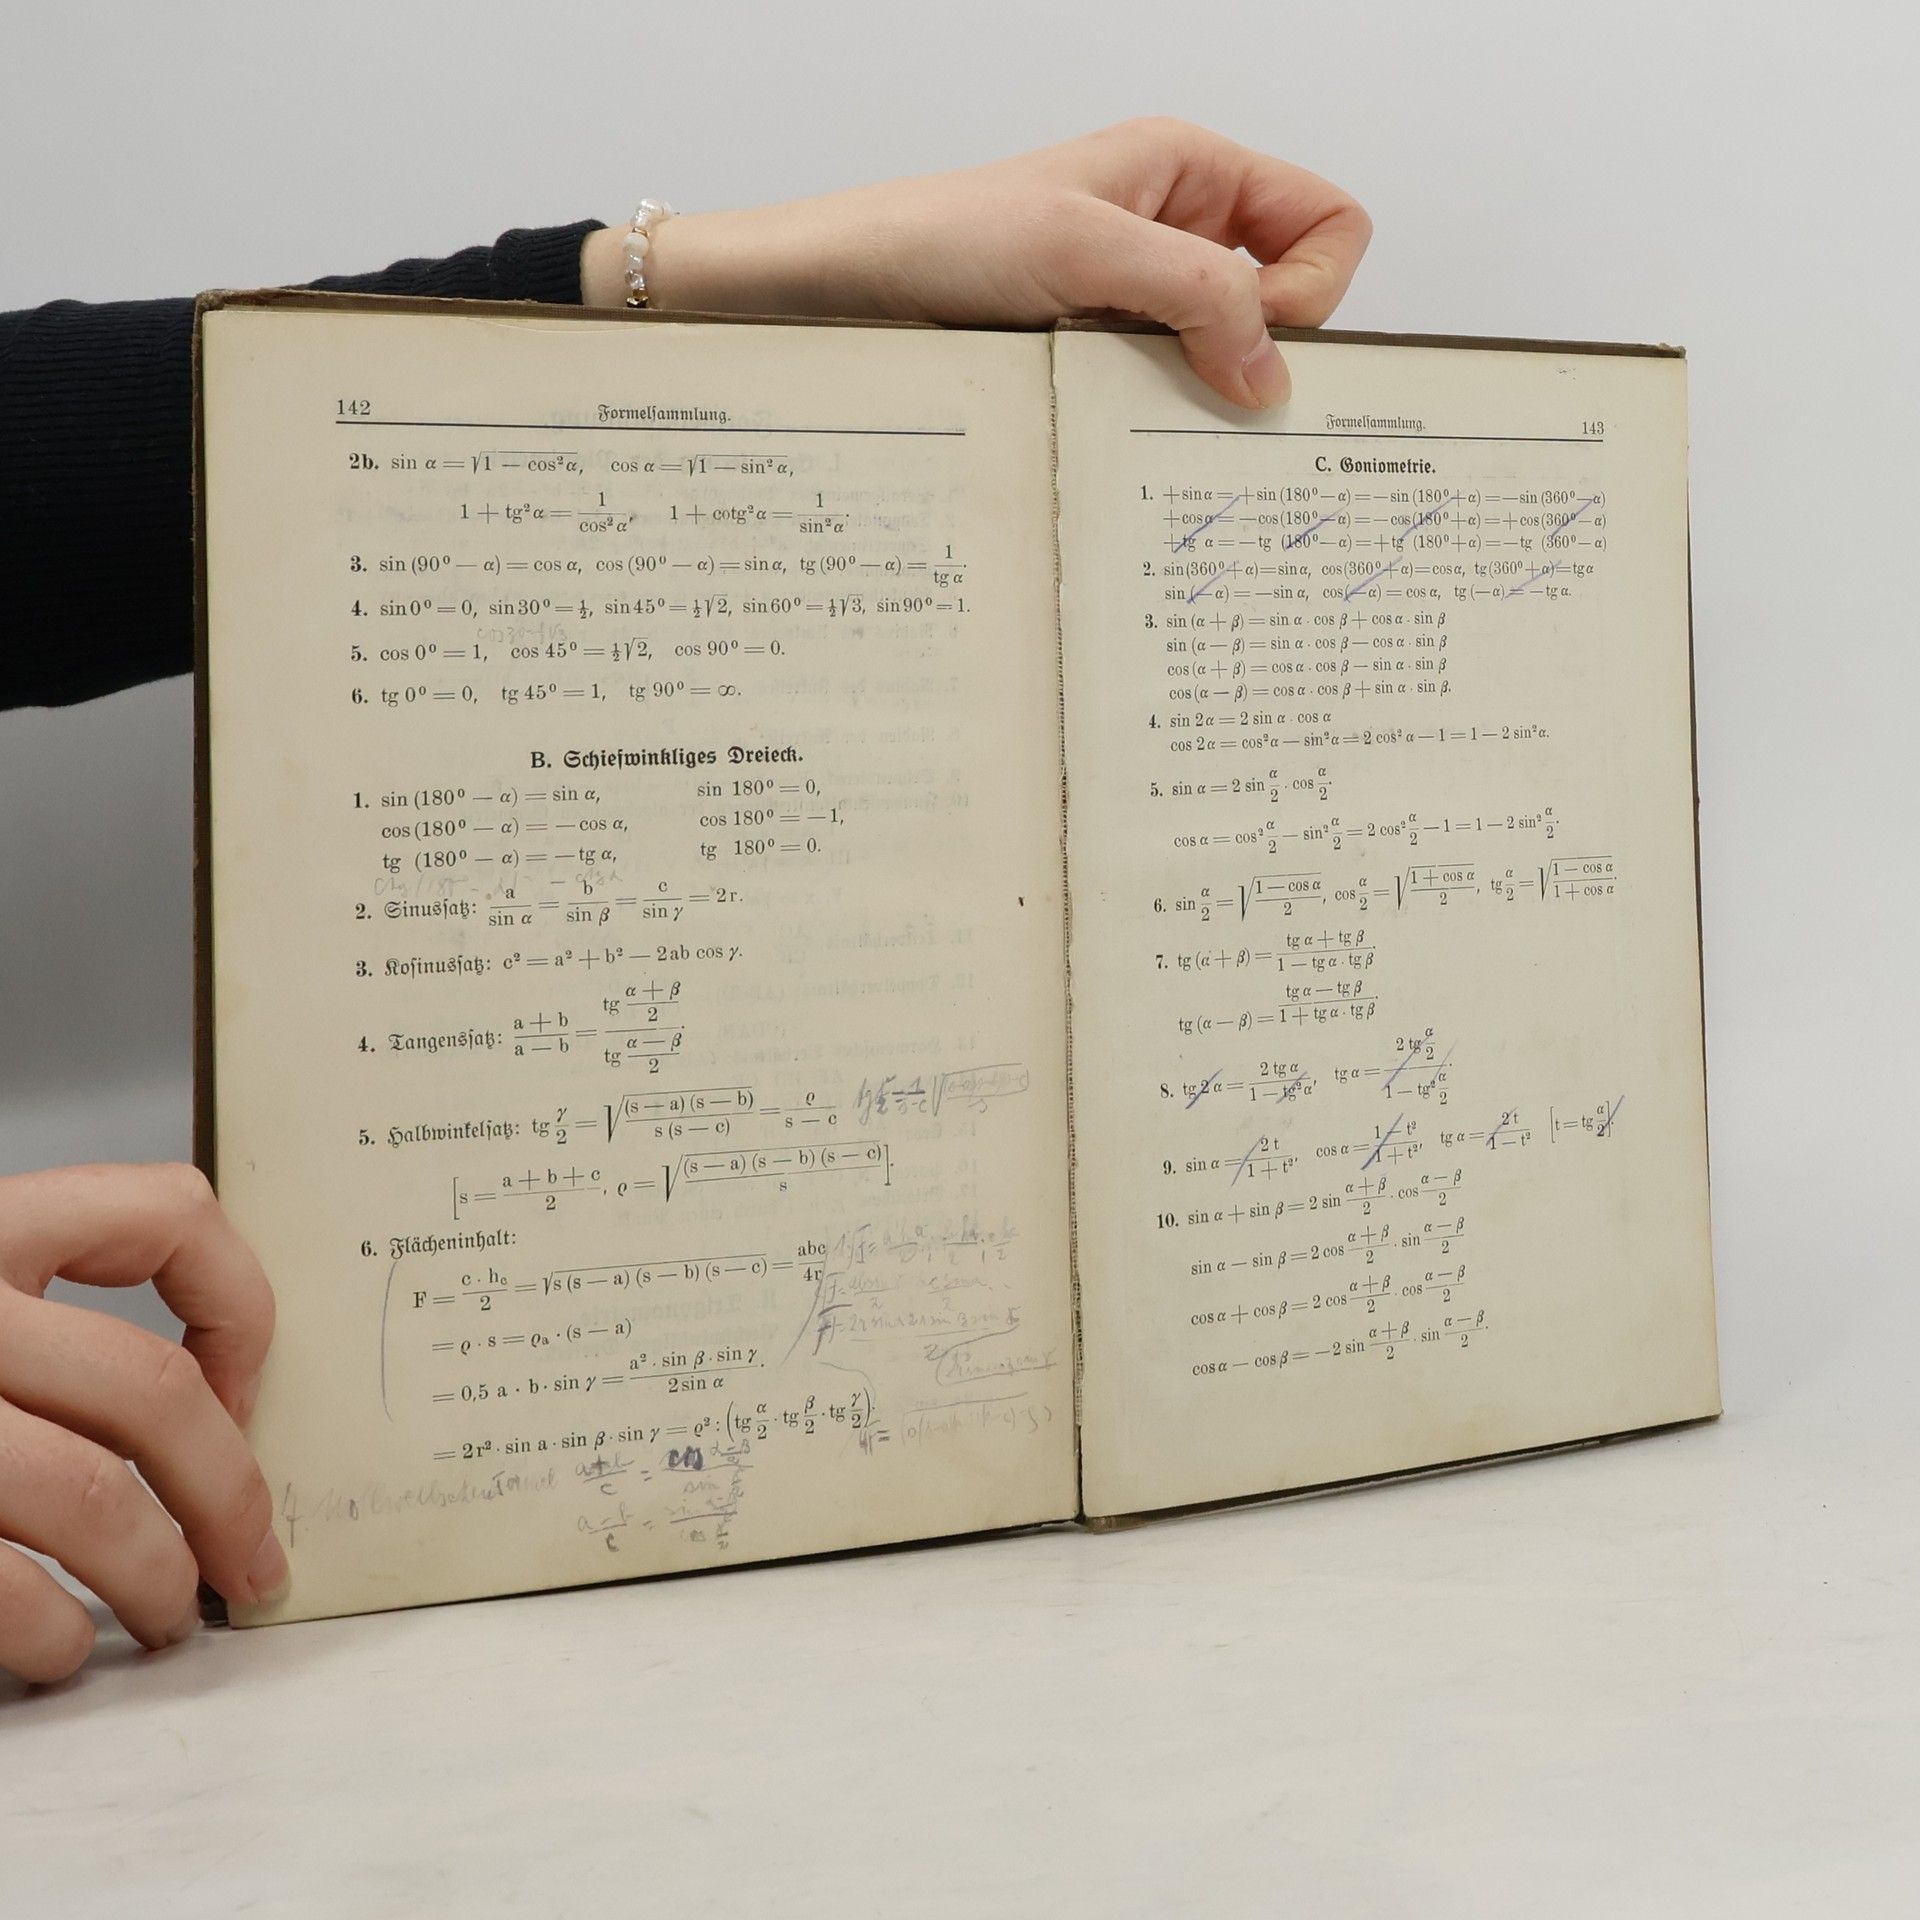 142 Formelsammlung.
2b. sin α = √(1 − cos² α), cos α = √(1 − sin² α),
1 + tg² α = 1/cos² α, 1 + cotg² α = 1/sin² α.
3. sin (90⁰ − α) = cos α, cos (90⁰ − α) = sin α, tg (90⁰ − α) = 1/tg α.
4. sin 0⁰ = 0, sin 30⁰ = ½, sin 45⁰ = ½√2, sin 60⁰ = ½√3, sin 90⁰ = 1.
cos 30 = ½√3
5. cos 0⁰ = 1, cos 45⁰ = ½√2, cos 90⁰ = 0.
6. tg 0⁰ = 0, tg 45⁰ = 1, tg 90⁰ = ∞.
B. Schiefwinkliges Dreieck.
1. sin (180⁰ − α) = sin α, sin 180⁰ = 0,
cos (180⁰ − α) = −cos α, cos 180⁰ = −1,
tg (180⁰ − α) = −tg α, tg 180⁰ = 0.
2. Sinussatz: a/sin α = b/sin β = c/sin γ = 2r.
3. Kosinussatz: c² = a² + b² − 2ab cos γ.
4. Tangenssatz: (a + b)/(a − b) = tg (α + β)/2 / tg (α − β)/2.
5. Halbwinkelsatz: tg γ/2 = √((s − a) (s − b)/s (s − c)) = ϱ/(s − c)
[s = (a + b + c)/2, ϱ = √((s − a) (s − b) (s − c)/s)].
6. Flächeninhalt:
F = c · h_c/2 = √(s (s − a) (s − b) (s − c)) = abc/4r
= ϱ · s = ϱₐ · (s − a)
= 0,5 a · b · sin γ = a² · sin β · sin γ/2 sin α.
= 2 r² · sin a · sin β · sin γ = ϱ² : (tg α/2 · tg β/2 · tg γ/2).
(a+b)/c = cos (α−β)/2 / sin
(a−b)/c = sin
Formelsammlung. 143
C. Goniometrie.
1. +sin α = +sin (180⁰ − α) = −sin (180⁰ + α) = −sin (360⁰ − α)
+cos α = −cos (180⁰ − α) = −cos (180⁰ + α) = +cos (360⁰ − α)
+tg α = −tg (180⁰ − α) = +tg (180⁰ + α) = −tg (360⁰ − α)
2. sin (360⁰ + α) = sin α, cos (360⁰ + α) = cos α, tg (360⁰ + α) = tg α
sin (−α) = −sin α, cos (−α) = cos α, tg (−α) = −tg α.
3. sin (α + β) = sin α · cos β + cos α · sin β
sin (α − β) = sin α · cos β − cos α · sin β
cos (α + β) = cos α · cos β − sin α · sin β
cos (α − β) = cos α · cos β + sin α · sin β.
4. sin 2α = 2 sin α · cos α
cos 2α = cos² α − sin² α = 2 cos² α − 1 = 1 − 2 sin² α.
5. sin α = 2 sin α/2 · cos α/2.
cos α = cos² α/2 − sin² α/2 = 2 cos² α/2 − 1 = 1 − 2 sin² α/2.
6. sin α/2 = √((1 − cos α)/2), cos α/2 = √((1 + cos α)/2), tg α/2 = √((1 − cos α)/(1 + cos α)).
7. tg (α + β) = (tg α + tg β)/(1 − tg α · tg β).
tg (α − β) = (tg α − tg β)/(1 + tg α · tg β).
8. tg 2 α = 2 tg α/(1 − tg² α), tg α = 2 tg α/2 / (1 − tg² α/2).
9. sin α = 2 t/(1 + t²), cos α = (1 − t²)/(1 + t²), tg α = 2 t/(1 − t²) [t = tg α/2].
10. sin α + sin β = 2 sin (α + β)/2 · cos (α − β)/2
sin α − sin β = 2 cos (α + β)/2 · sin (α − β)/2
cos α + cos β = 2 cos (α + β)/2 · cos (α − β)/2
cos α − cos β = −2 sin (α + β)/2 · sin (α − β)/2.